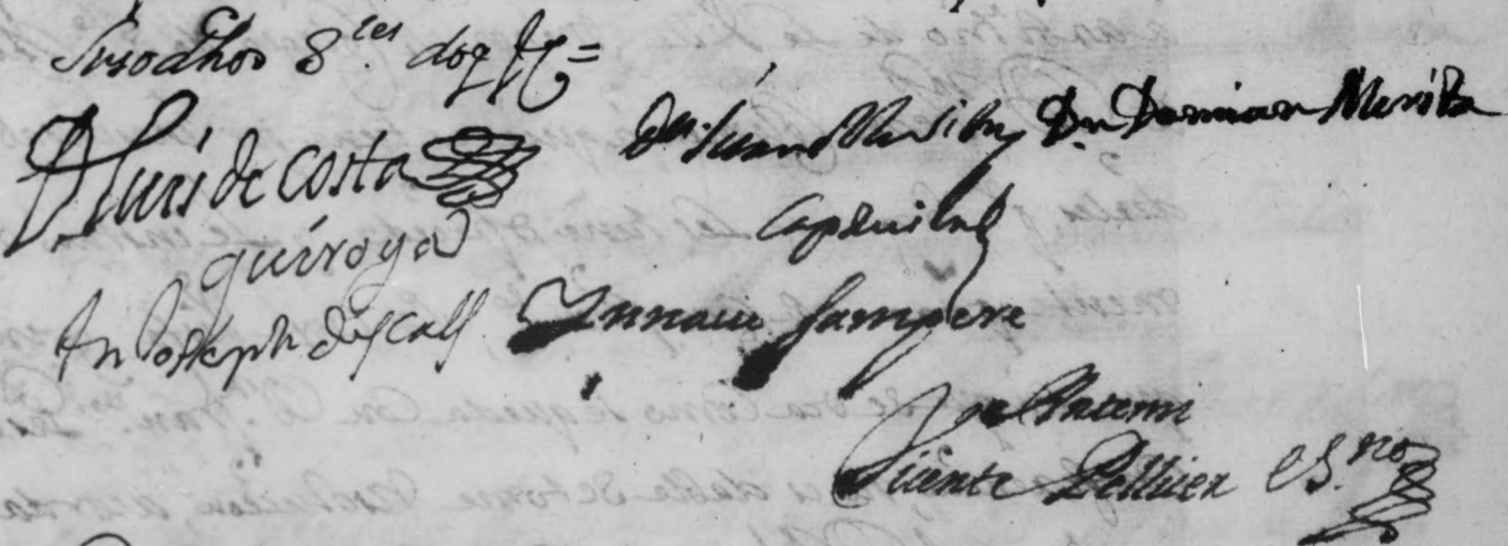 susodhos S.res doy fee =
D Luis de Costa
quiroga
Dn Damian Merita
Capdevila
An Joseph descals
Ygnacio sempere
Vicente Pellicer es.no